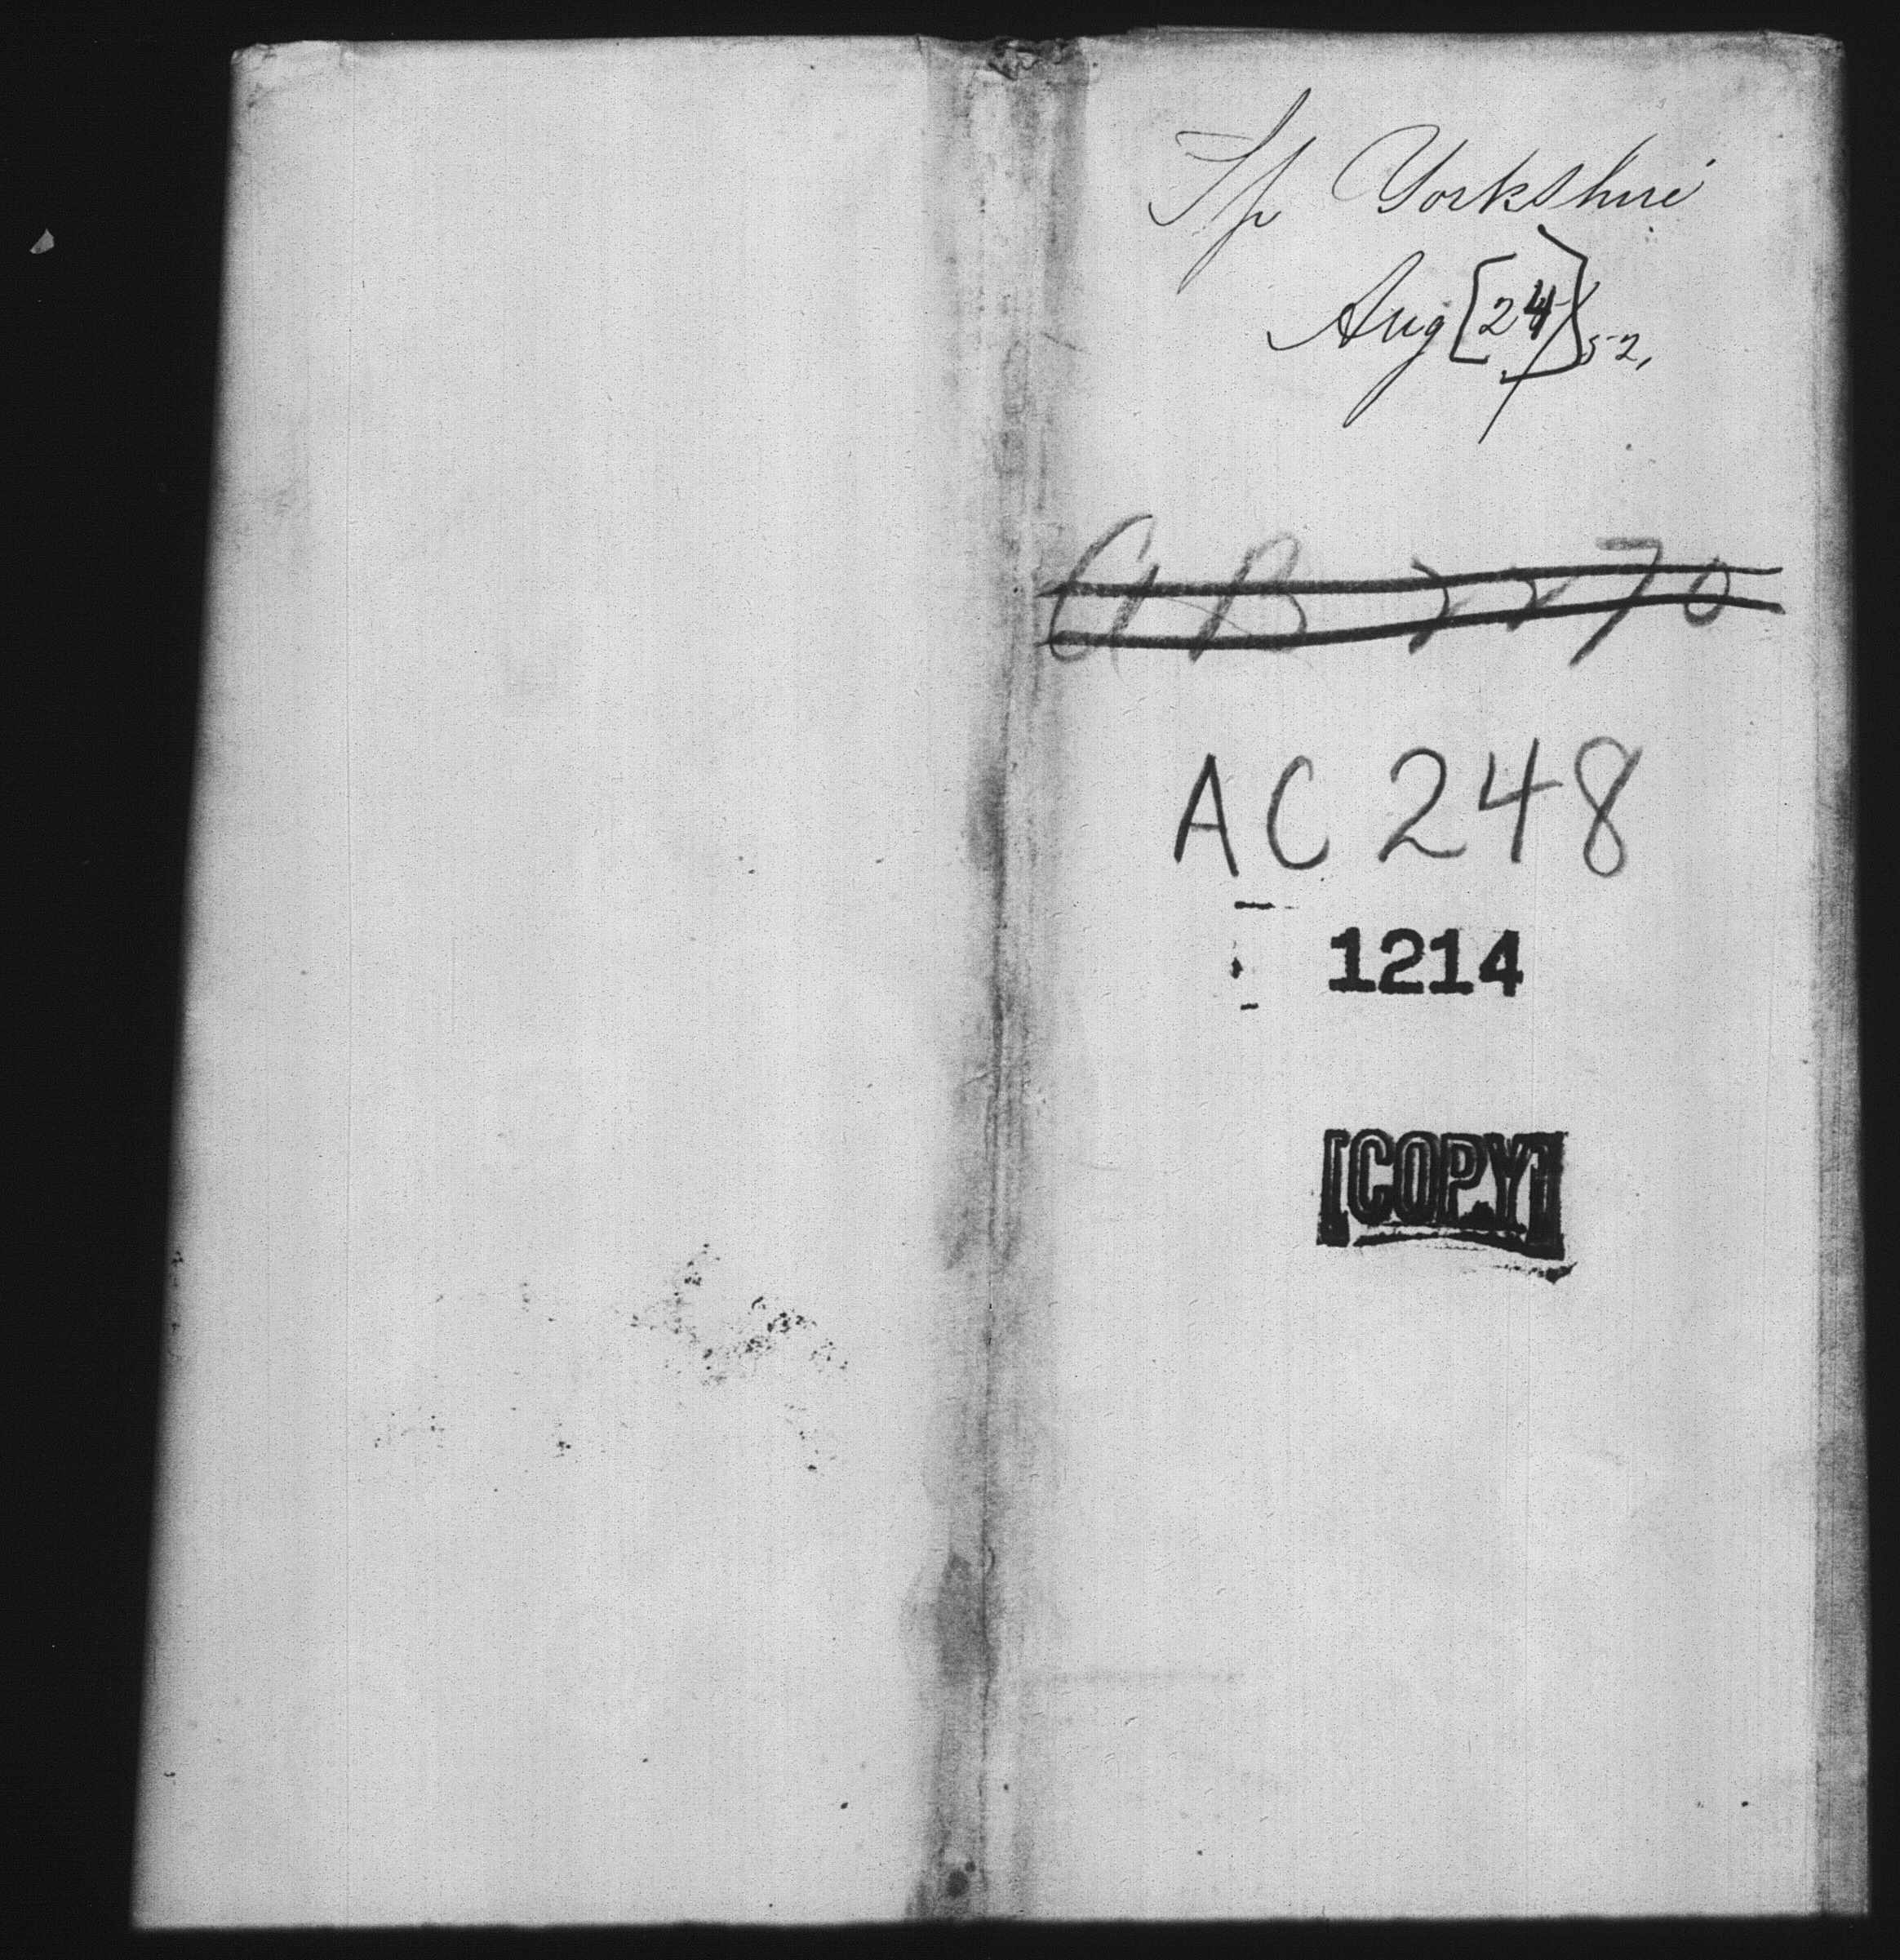 Sp Yorkshire
Aug [24] 52,
AB 2270
AC 248
1214
[COPY]